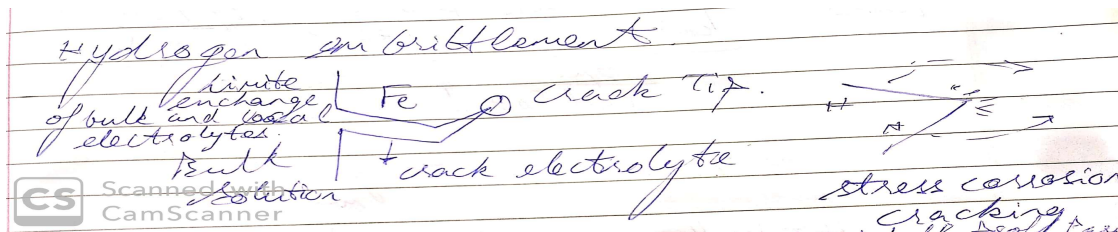 Hydrogen embrittlement
Limite
enchange
of bulk and local
electrolytes.
Bulk
solution
Fe
crack Tip.
crack electrolyte
H
stress corrosion
cracking
CS
Scanned with
CamScanner